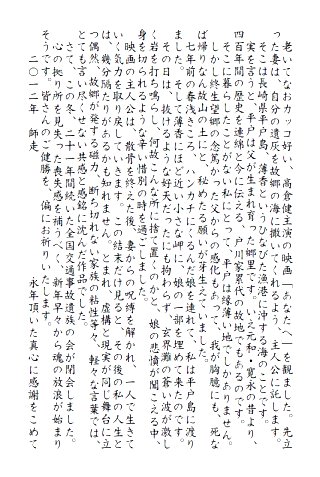 老いてなおカッコ好い、高倉健主演の映画「あなたへ」を観ました。先立
った妻は、自分の遺灰を故郷の海に撒いてくれるよう、主人公に託します。
そこは長崎県平戸島、薄香というひなびた漁港に沖する海のことです。
実を言うと、平戸は父が生まれ育った郷里です。いえ元和・寛永の昔より、
四百年間の歴史を連綿と今に伝える、戸川家累代の故地でもあるのです。
そこに暮らしたことがない私にとって、平戸は縁薄い地でしかありません。
しかし終生望郷の念篤かった父からの感化もあって、我が胸臆にも、死な
ば帰りなん故山の土にと、秘めたる願いが芽生えていました。
七年前の春浅きころ、ハンカチにくるんだ娘を連れて、私は平戸島に渡り
ました。そして薄香にほど近い小さな岬に、娘の一部を埋めて来たのです。
その日は、抜けるような好天だったにも拘わらず、玄界灘の蒼い波が激し
く岩を打ち鳴らし、何故こんな所に捨て置くのかと、娘の悲憤が聞こえる中、
身を切られるような辛い惜別の時を過ごしました。
映画の主人公は、散骨を終えた後、妻からの呪縛が解かれ、一人で生きて
いく気力を取り戻していきます。この結末だけ見ると、その後の私の人生と
は、幾分隔たりがあるかも知れません。とまれ、虚構と現実が同じ舞台に立
つ偶然、故郷が発する磁力、断ち切れない家族の粘性等々、軽々な言葉では、
とても言い尽くせない共感と感銘に沈んだ作品でした。
さて、この冬、二十一年間続いた全国交通事故遺族の会が閉会しました。
心の拠り所を見失った喪失感を補うべく、新年早々から魂の放浪が始まり
そうです。皆さんのご健勝を、偏にお祈りします。
二〇一二年　師走
永年頂いた真心に感謝をこめて